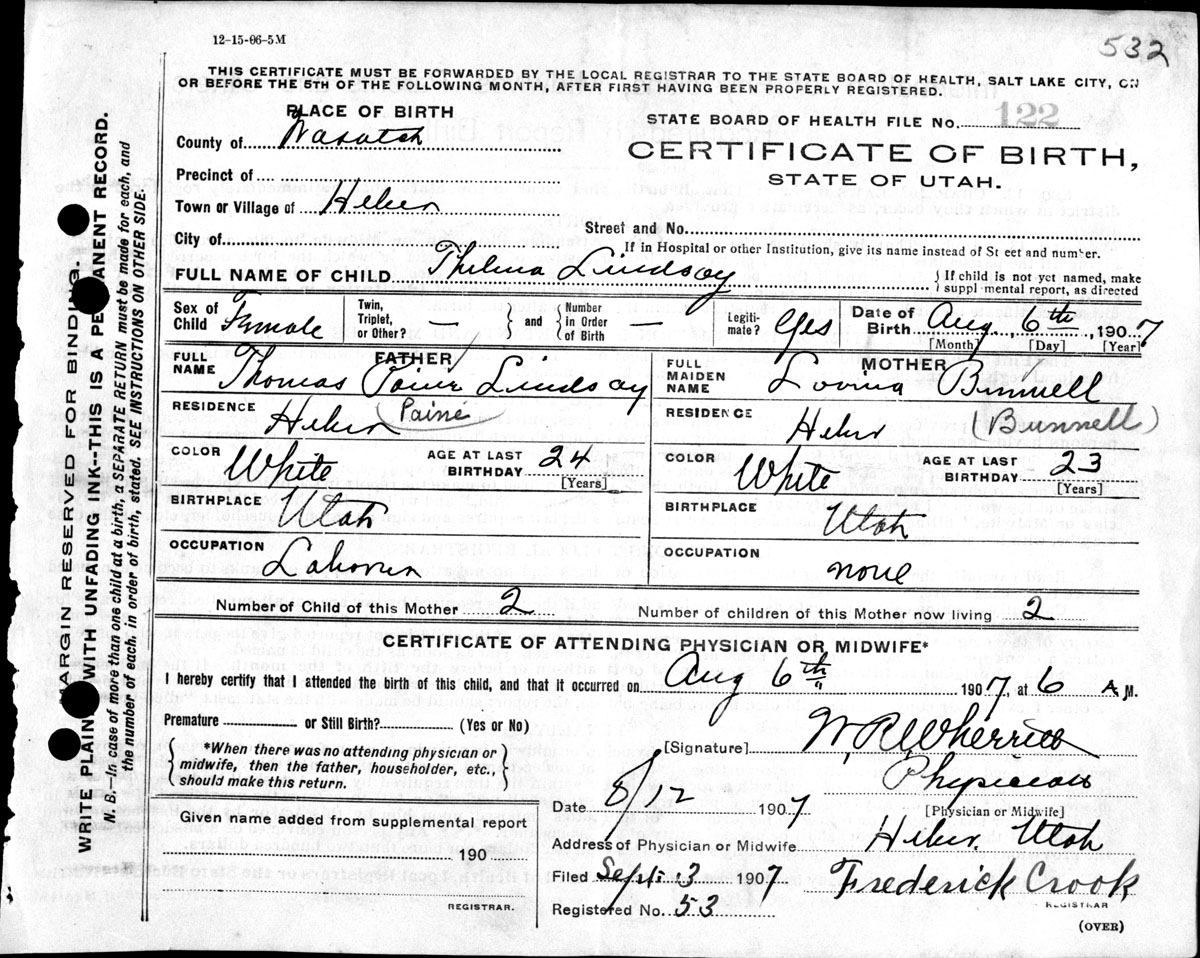 12-15-06-5M
532
THIS CERTIFICATE MUST BE FORWARDED BY THE LOCAL REGISTRAR TO THE STATE BOARD OF HEALTH, SALT LAKE CITY, ON
OR BEFORE THE 5TH OF THE FOLLOWING MONTH, AFTER FIRST HAVING BEEN PROPERLY REGISTERED.
PLACE OF BIRTH
County of Wasatch
STATE BOARD OF HEALTH FILE No. 122
CERTIFICATE OF BIRTH,
STATE OF UTAH.
Precinct of
Town or Village of Heber
Street and No.
City of
If in Hospital or other Institution, give its name instead of St eet and number.
FULL NAME OF CHILD Thelma Lindsay
{ If child is not yet named, make
suppl mental report, as directed
Sex of Child Female
Twin, Triplet, or Other? —
and
Number in Order of Birth —
Legiti-mate? Yes
Date of Birth Aug 6th, 1907
[Month] [Day] [Year]
FATHER
FULL NAME Thomas Lindsay
(Paine)
RESIDENCE Heber
COLOR White
AGE AT LAST BIRTHDAY 24
[Years]
BIRTHPLACE Utah
OCCUPATION Laborer
MOTHER
FULL MAIDEN NAME Lovina Bunnell
RESIDENCE Heber
(Bunnell)
COLOR White
AGE AT LAST BIRTHDAY 23
[Years]
BIRTHPLACE Utah
OCCUPATION none
Number of Child of this Mother 2
Number of children of this Mother now living 2
CERTIFICATE OF ATTENDING PHYSICIAN OR MIDWIFE*
I hereby certify that I attended the birth of this child, and that it occurred on Aug 6th 1907, at 6 A M.
Premature or Still Birth? (Yes or No)
{ *When there was no attending physician or
midwife, then the father, householder, etc.,
should make this return. }
[Signature] W. R. Wherritt
Physician
[Physician or Midwife]
Date 8/12 1907
Address of Physician or Midwife Heber, Utah
Given name added from supplemental report
190
REGISTRAR.
Filed Sept. 3 1907
Frederick Crook
REGISTRAR
Registered No. 53
(OVER)
MARGIN RESERVED FOR BINDING.
WRITE PLAIN WITH UNFADING INK--THIS IS A PE ANENT RECORD.
N. B.—In case of more than one child at a birth, a SEPARATE RETURN must be made for each, and
the number of each, in order of birth, stated. SEE INSTRUCTIONS ON OTHER SIDE.